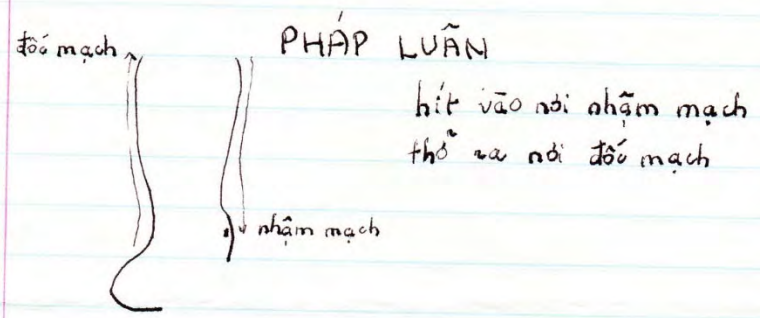 đốc mạch
PHÁP LUÂN
hít vào nơi nhậm mạch
thở ra nơi đốc mạch
nhậm mạch